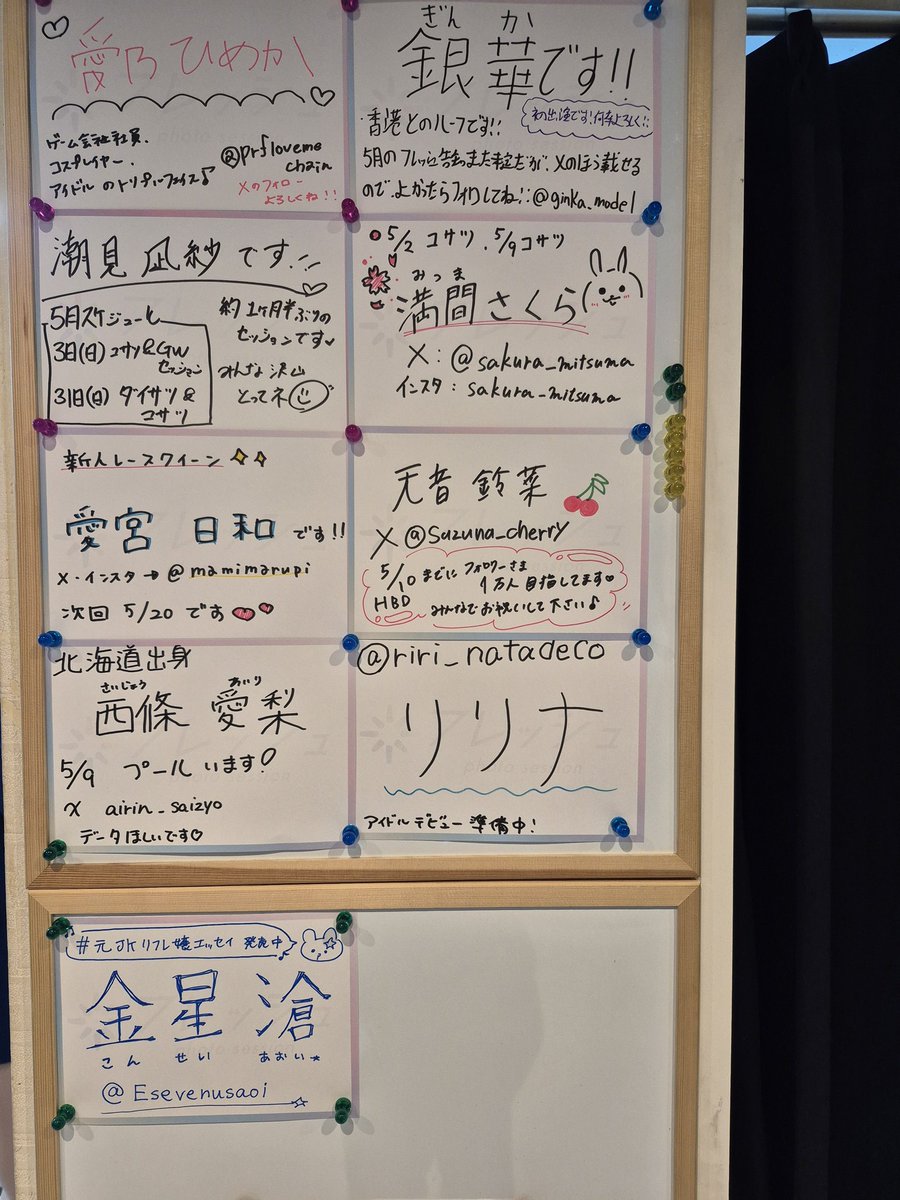 愛乃ひめか
ゲーム会社社員.
コスプレイヤー.
アイドルのトリプルフェイス♪
@prfloveme
chain
Xのフォロー
よろしくね!!
ぎん か
銀華です!!
・香港とのハーフです!!
初出演です!何卒よろしく!!
5月のフレッシュ
Xのほう載せる
ので、よかったらフォローしてね!!@ginka_model
潮見 凪紗です!!
5月スケジュール
3日(日) コサツ&GW
セッション
31日(日) ダイサツ &
コサツ
約1ヶ月半ぶりの
セッションです
みんな沢山
とってネ
5/2 コサツ、5/9コサツ
みつま
満間さくら
X:@sakura_mitsuma
インスタ:sakura_mitsuma
新人レースクイーン
愛宮 日和です!!
X・インスタ→@mamimarupi
次回 5/20 です
天音 鈴菜
X@suzuna_cherry
5/10までにフォロワーさま
1万人目指してます♡
HBD みんなでお祝いして下さい♪
北海道出身
さいじょう あいり
西條 愛梨
5/9 プールいます!
X airin_saizyo
データほしいです♡
@riri_natadeco
リリナ
アイドルデビュー準備中!
#元JKリフレ嬢エッセイ 発売中
金星 滄
こん せい あおい★
@Esevenusaoi